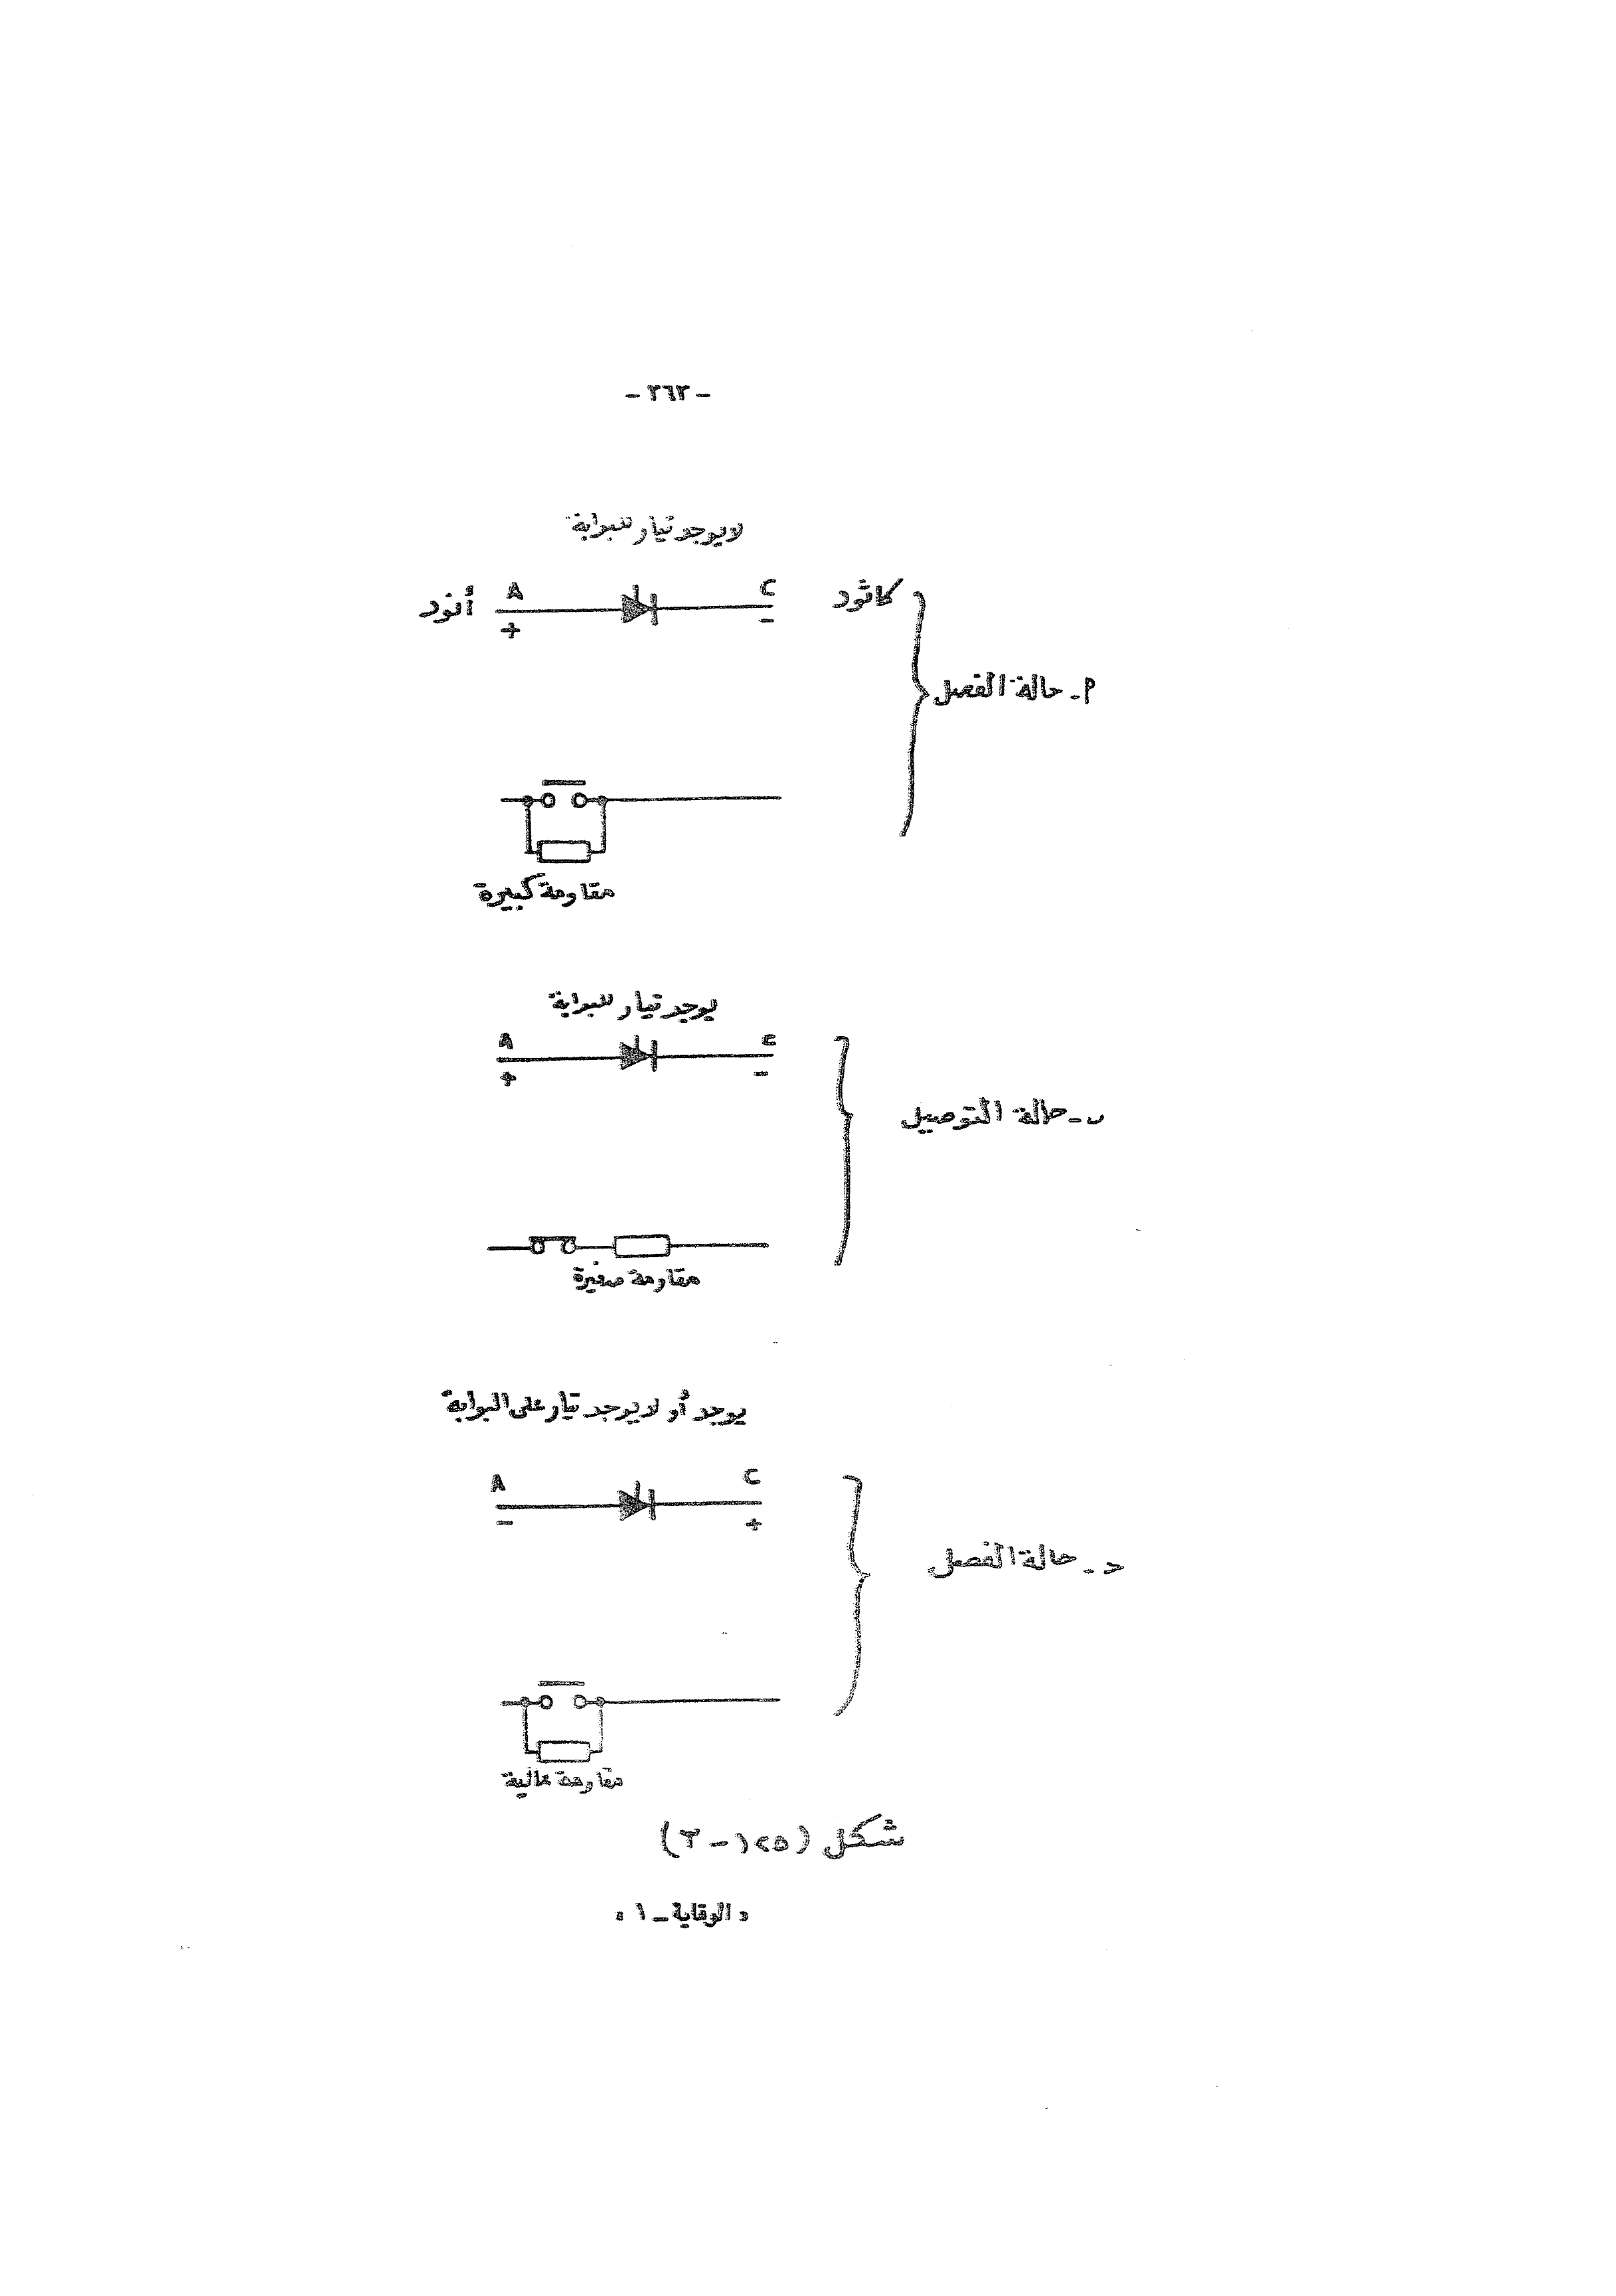 - ٣٦٣ -
لا يوجد تيار للبوابة
كاثود C A أنود
- +
أ - حالة الفصل
مقاومة كبيرة
يوجد تيار للبوابة
A C
+ -
ب - حالة التوصيل
مقاومة صغيرة
يوجد أو لا يوجد تيار على البوابة
A C
- +
حـ - حالة الفصل
مقاومة عالية
شكل (١٢٥ - ٣)
« الوقاية - ١ »